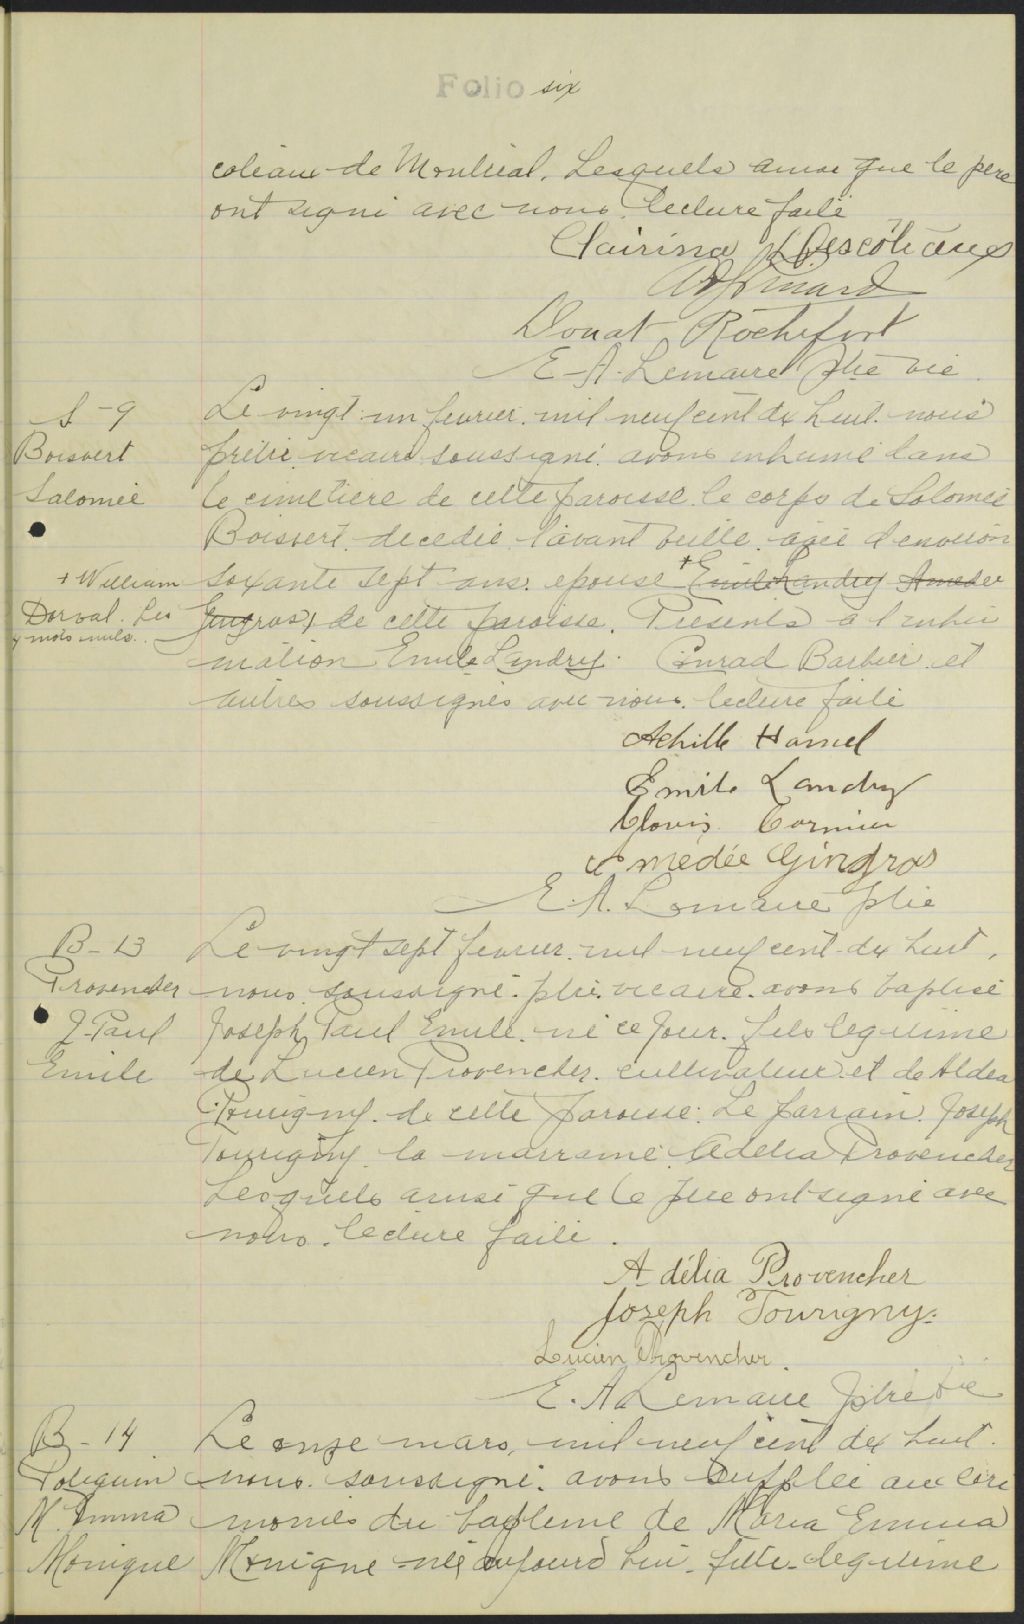 Folio six
coteaux de Montréal. Lesquels ainsi que le père
ont signé avec nous. lecture faite
Clairina Descôteaux
Donat Rochefort
E-A-Lemaire Ptre vic
S-9 Le vingt un fevrier mil neuf cent dix huit. nous
Boisvert prêtre vicaire soussigné avons inhumé dans
Salomée le cimetière de cette paroisse le corps de Salomée
Boisvert decedée l'avant veille agée d'environ
+ William soixante sept ans. epouse + Emile Landry Amedee
Dorval. Les Gingras, de cette paroisse. Presents à l'inhu
4 mots nuls. mation Emile Landry. Conrad Barbier et
autres soussignés avec nous. lecture faite
Achille Hamel
Emile Landry
Clovis Cormier
Amédée Gingras
E.A. Lemaire ptre
B-13 Le vingt sept fevrier mil neuf cent dix huit,
Provencher nous soussigné. ptre. vicaire. avons baptisé
J-Paul Joseph Paul Emile. né ce jour. fils legitime
Emile de Lucien Provencher. cultivateur et de Aldea
Tourigny. de cette paroisse. Le parrain Joseph
Tourigny la marraine Adelia Provencher
Lesquels ainsi que le père ont signé avec
nous. lecture faite.
Adélia Provencher
Joseph Tourigny.
Lucien Provencher.
E. A Lemaire Ptre vic
B-14 Le onze mars, mil neuf cent dix huit.
Poliquin nous soussigné. avons supplée aux céré
M. Emma monies du baptême de Maria Emma
Monique Monique née aujourd'hui. fille legitime